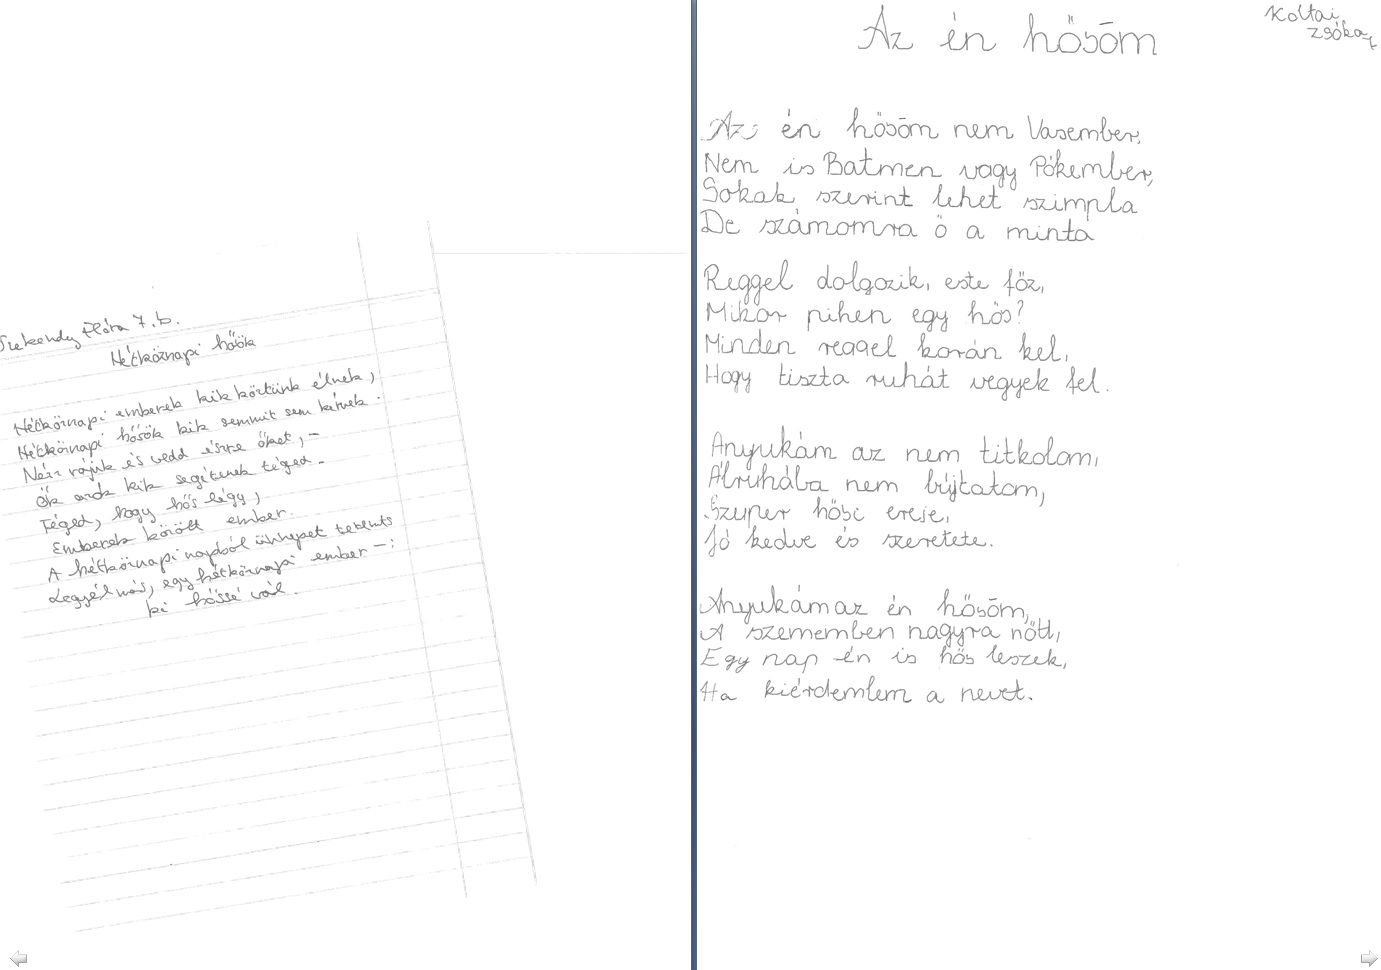 Flóra 7.b.
Hétköznapi hősök
Hétköznapi emberek kik köztünk élnek,
Hétköznapi hősök kik semmit sem kérnek.
Nézz rájuk és vedd észre őket, –
Ők azok kik segítenek téged.
Téged, hogy hős légy,
Emberek között ember.
A hétköznapi napból ünnepet teremts
Legyél más, egy hétköznapi ember –:
ki hőssé vál.
Az én hősöm
Koltai
Zsóka
Az én hősöm nem Vasember,
Nem is Batmen vagy Pókember,
Sokak szerint lehet szimpla
De számomra ő a minta
Reggel dolgozik, este főz,
Mikor pihen egy hős?
Minden reggel korán kel,
Hogy tiszta ruhát vegyek fel.
Anyukám az nem titkolom,
Álruhába nem bújtatom,
Szuper hősi ereje,
Jó kedve és szeretete.
Anyukám az én hősöm,
A szememben nagyra nőtt,
Egy nap én is hős leszek,
Ha kiérdemlem a nevet.